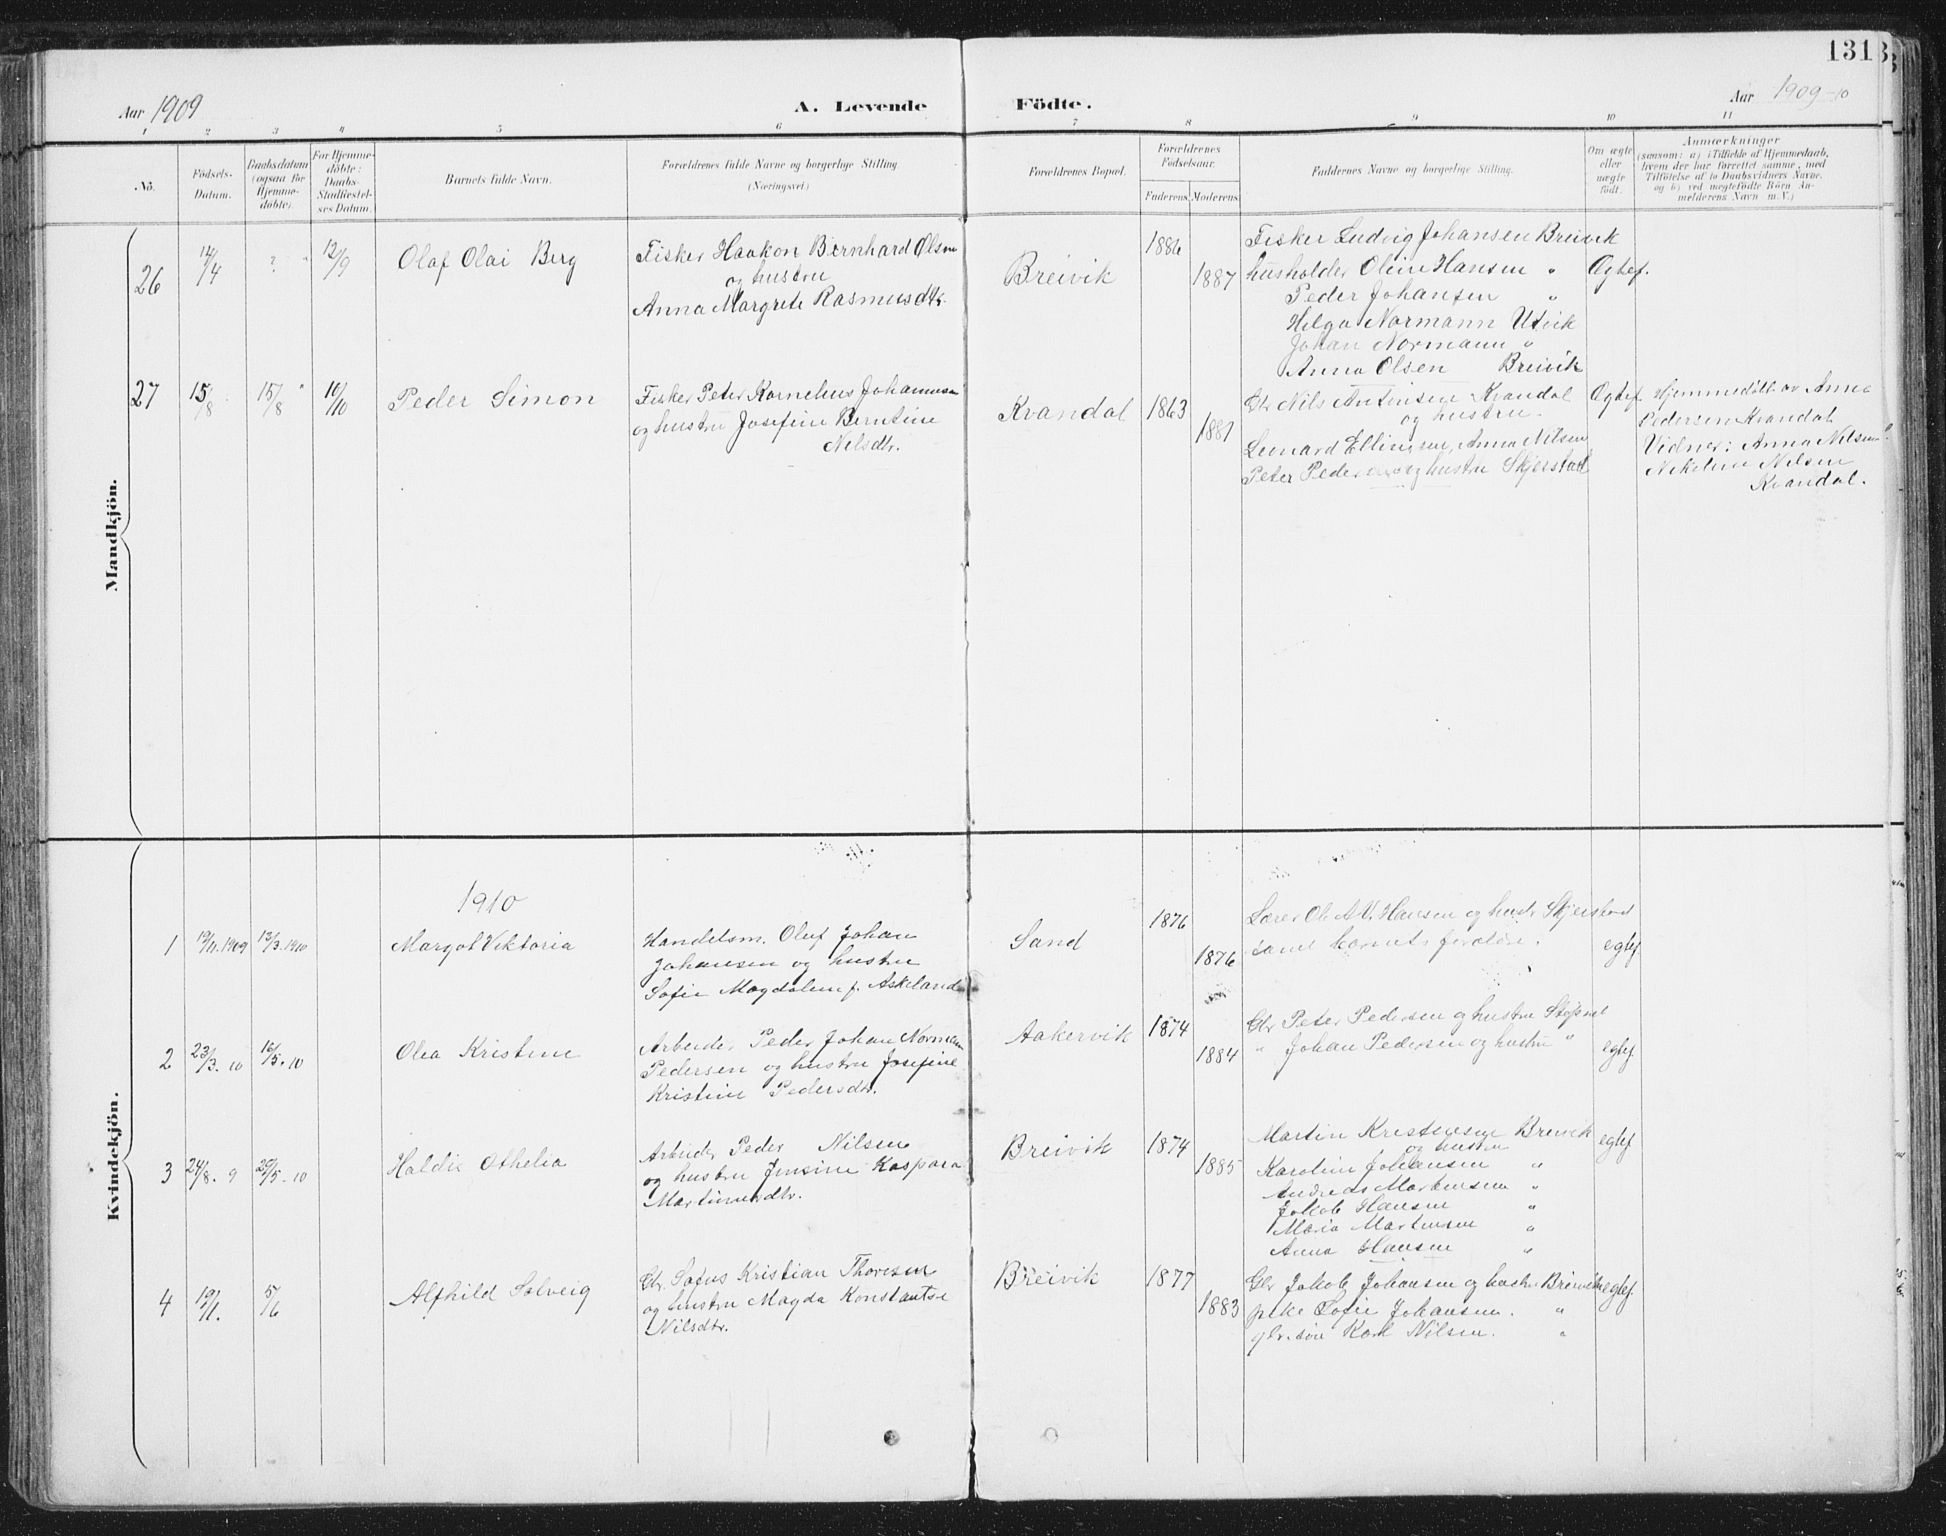 Aar 1909
A. Levende
Födte.
Aar 1909-10
131
1 2 3 4 5 6 7 8 9 10 11
No.
Födsels-
Datum.
Daabsdatum
(ogsaa for
Hjemme-
döbte).
For Hjemme-
döbte:
Daabs-
Stadfæstel-
ses Datum.
Barnets fulde Navn.
Forældrenes fulde Navne og borgerlige Stilling
(Næringsvei.)
Forældrenes Bopæl.
Forældrenes
Födselsaar.
Faderens. Moderens.
Faddernes Navne og borgerlige Stilling.
Om ægte
eller
uægte
födt.
Anmærkninger
(saasom: a) i Tilfælde af Hjemmedaab,
hvem der har forrettet samme, med
Tilföielse af to Daabsvidners Navne,
og b) ved uegtefödte Börn An-
melderens Navn m.V.)
Mandkjön.
26
14/4
?
12/9
Olaf Olai Berg
Fisker Haakon Bernhard Olsen
og hustru
Anna Margrete Rasmusdtr.
Breivik
1886
1887
Fisker Ludvig Johansen Breivik
husholder Oline Hansen "
Peder Johansen "
Helga Normann Utvik
Johan Normann "
Anna Olsen Breivik
Ogtef.
27
15/8
15/8
10/10
Peder Simon
Fisker Peter Kornelius Johannesen
og hustru Josefine Berntine
Nelsdtr.
Kvandal
1863
1881
Gbr Nils Antinsen Kvandal
og hustru
Leonard Ellingsen, Anna Nilsen
Peter Pedersen og hustru Skjerstad
Ogtef
Hjemmedöbt av Anna
Pedersen Kvandal
Vidner: Anna Nilsen
Nekoline Nilsen
Kvandal.
Kvindekjön.
1910
1
19/11.1909
13/3.1910
Margot Viktoria
Handelsm. Oluf Johan
Johansen og hustru
Sofie Magdalene f. Askeland
Sand
1876
1876
Lærer Ole A.V. Hansen og hustr Skjerstad
samt barnets foreldre.
egtef.
2
23/3.10
16/5.10
Olea Kristine
Arbeider Peder Johan Norman
Pedersen og hustru Josefine
Kristine Pedersdtr.
Aakervik
1874
1884
Gbr Peter Pedersen og hustru
" Johan Pedersen og hustru "
egtef
3
24/8.9
25/5.10
Haldis Othelia
Arbeider Peder Nilsen
og hustru Jensine Kaspara
Martinusdtr.
Breivik
1874
1885
Martin Kristensen Breivik
og hustru
Karoline Johansen "
Andreas Martensen "
Jakob Hansen "
Maria Martensen "
Anna Hansen "
egtef
4
19/1.
5/6
Alfhild Solveig
Gbr. Sofus Kristian Thoresen
og hustru Magda Konstantse
Nilsdtr.
Breivik
1877
1883
Gbr Jakob Johansen og hustr Breivik
pike Sofie Johansen. "
gbr.søn Karl Nilsen. "
egtef